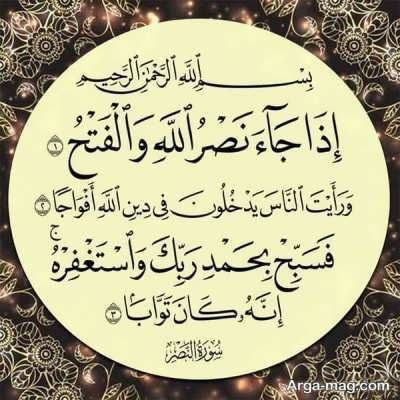 بِسْمِ اللَّهِ الرَّحْمَٰنِ الرَّحِيمِ
إِذَا جَآءَ نَصْرُ اللَّهِ وَالْفَتْحُ ١
وَرَأَيْتَ النَّاسَ يَدْخُلُونَ فِي دِينِ اللَّهِ أَفْوَاجًا ٢
فَسَبِّحْ بِحَمْدِ رَبِّكَ وَاسْتَغْفِرْهُ ۚ
إِنَّهُۥ كَانَ تَوَّابًا ٣
سُورَةُ النَّصْرِ
Arga-mag.com